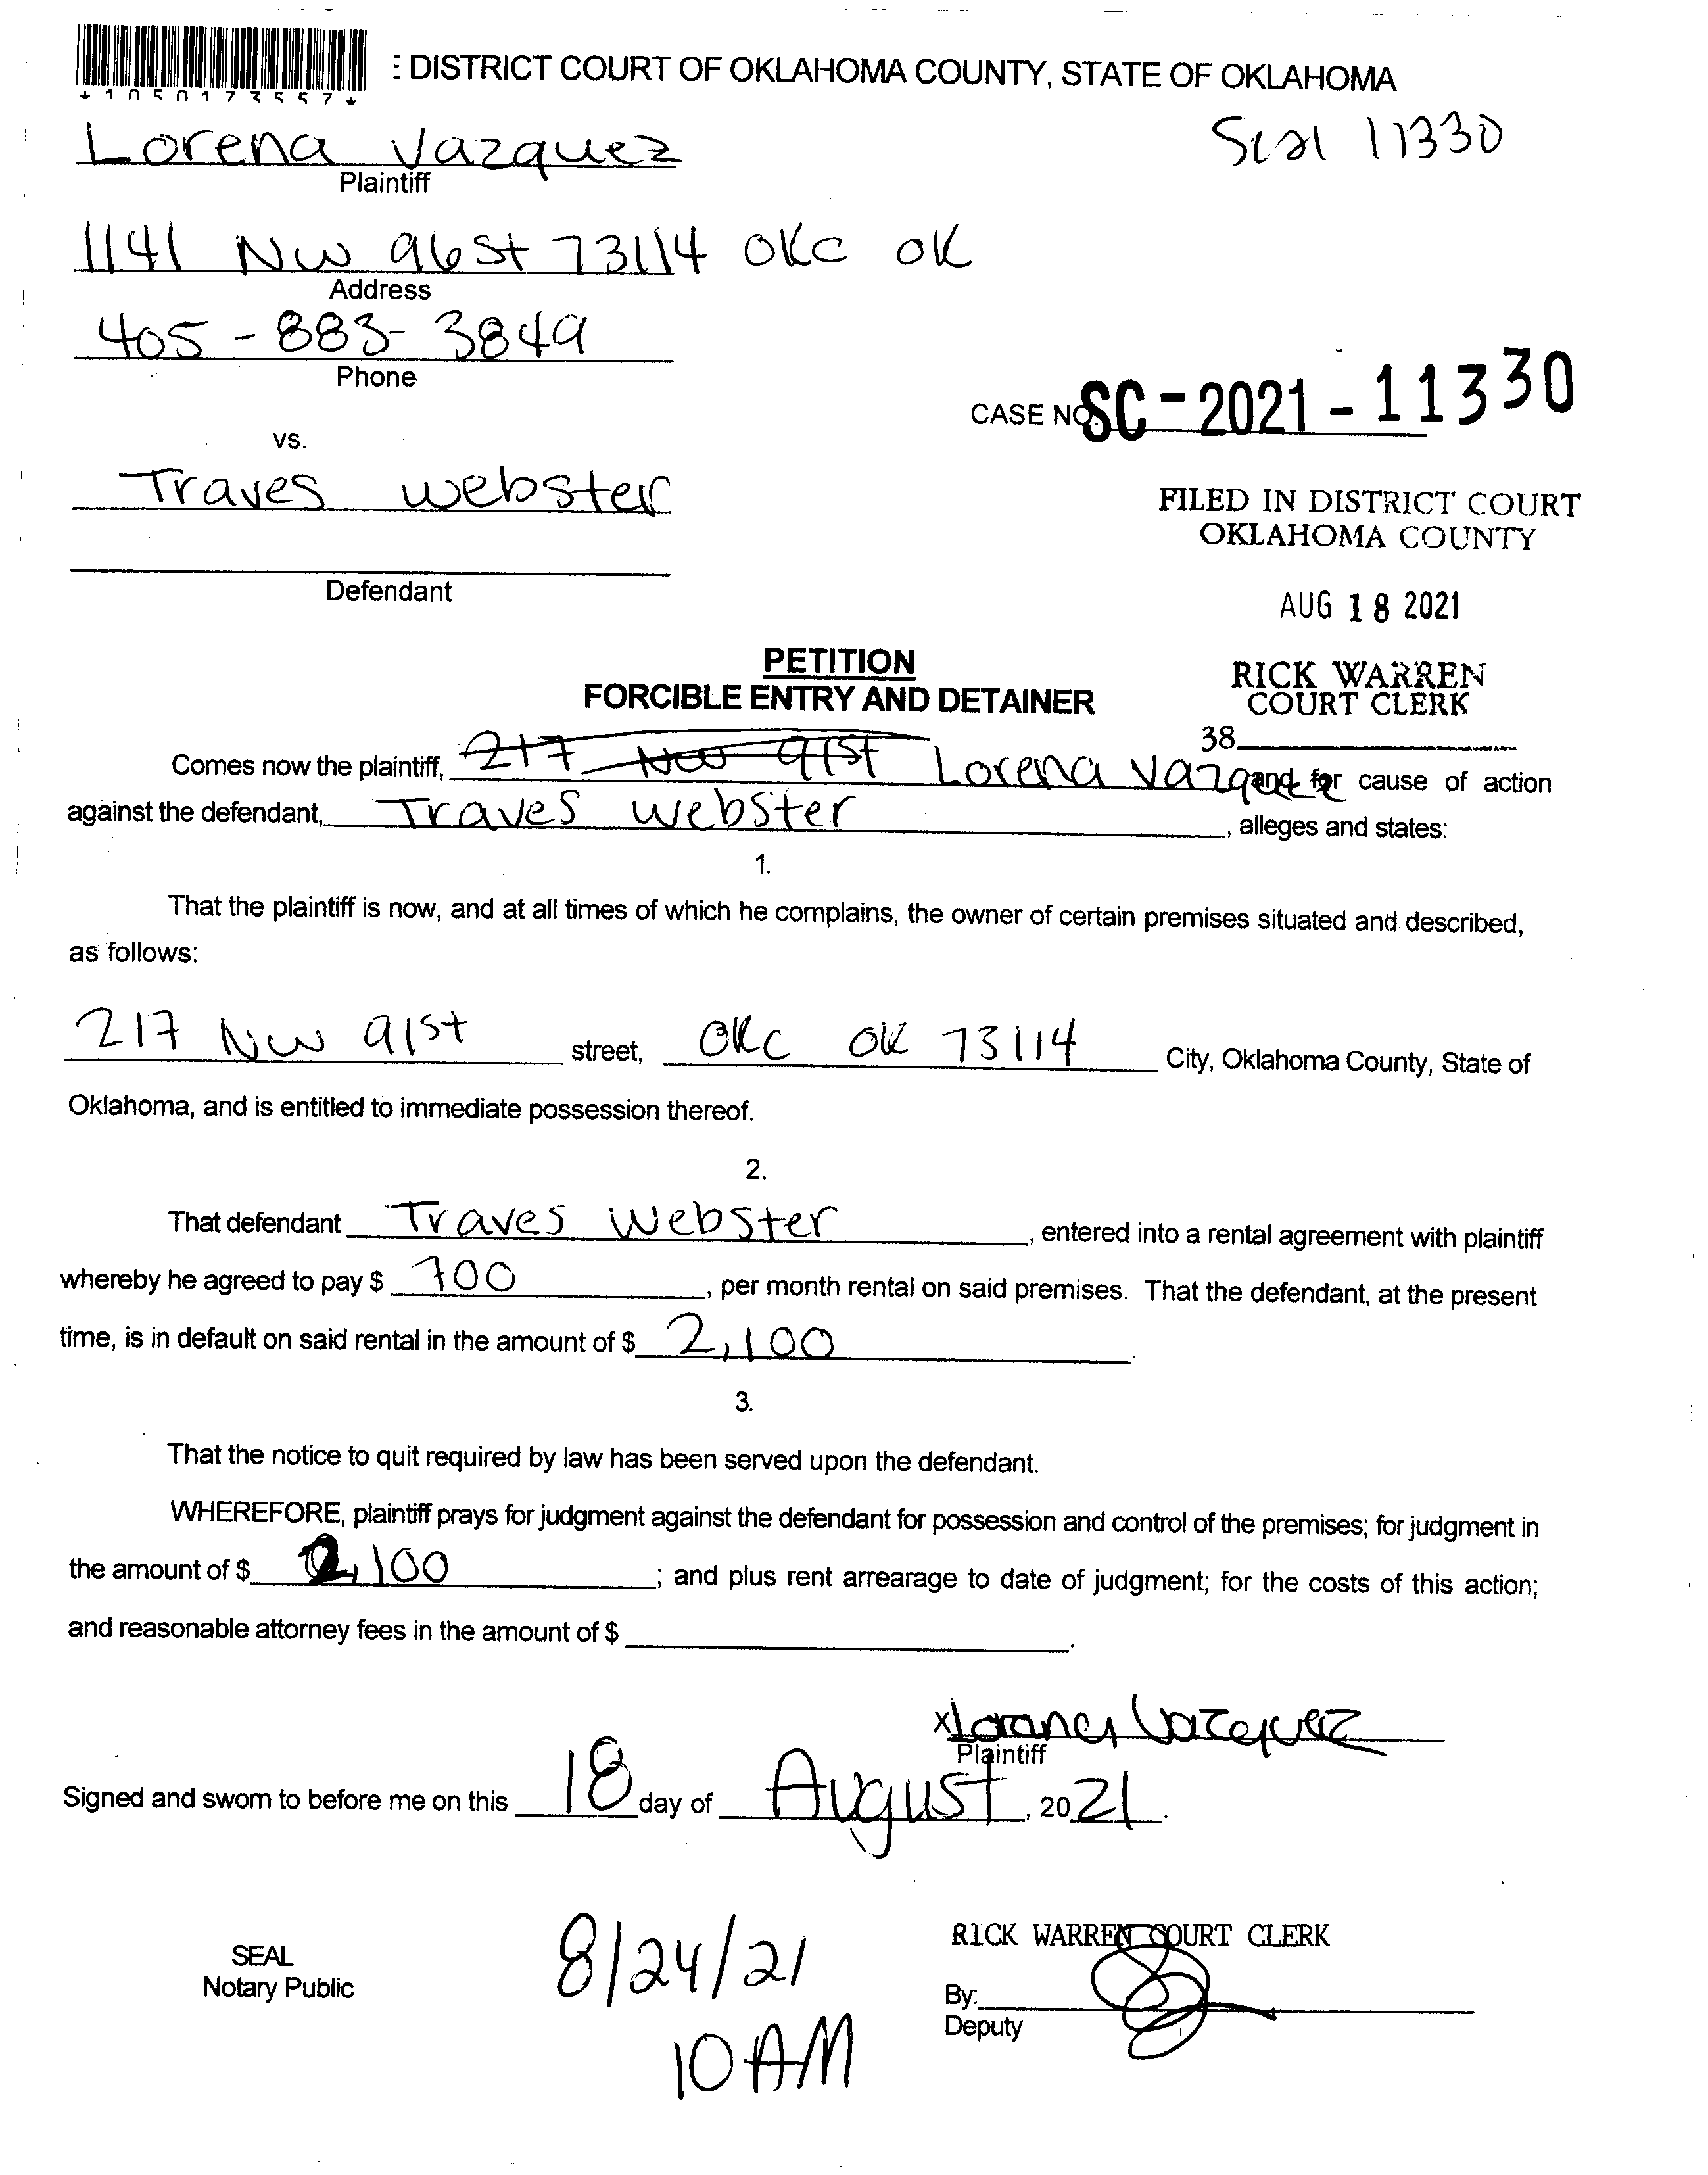 DISTRICT COURT OF OKLAHOMA COUNTY, STATE OF OKLAHOMA
*1050173557*
Lorena Vazquez
11330
Plaintiff
1141 NW 96st 73114 OKC OK
Address
405-883-3849
Phone
CASE NO. SC-2021-11330
vs.
Traves Webster
FILED IN DISTRICT COURT
OKLAHOMA COUNTY
Defendant
AUG 18 2021
PETITION
FORCIBLE ENTRY AND DETAINER
RICK WARREN
COURT CLERK
38
Comes now the plaintiff, 217 NW 91st Lorena Vazquez and for cause of action
against the defendant, Traves Webster, alleges and states:
1.
That the plaintiff is now, and at all times of which he complains, the owner of certain premises situated and described,
as follows:
217 NW 91st street, OKC OK 73114 City, Oklahoma County, State of
Oklahoma, and is entitled to immediate possession thereof.
2.
That defendant Traves Webster, entered into a rental agreement with plaintiff
whereby he agreed to pay $ 700, per month rental on said premises. That the defendant, at the present
time, is in default on said rental in the amount of $ 2,100.
3.
That the notice to quit required by law has been served upon the defendant.
WHEREFORE, plaintiff prays for judgment against the defendant for possession and control of the premises; for judgment in
the amount of $ 2,100; and plus rent arrearage to date of judgment; for the costs of this action;
and reasonable attorney fees in the amount of $.
x Lorena Vazquez
Plaintiff
Signed and sworn to before me on this 18 day of August, 2021.
SEAL
Notary Public
8/24/21
10 AM
RICK WARREN COURT CLERK
By:
Deputy